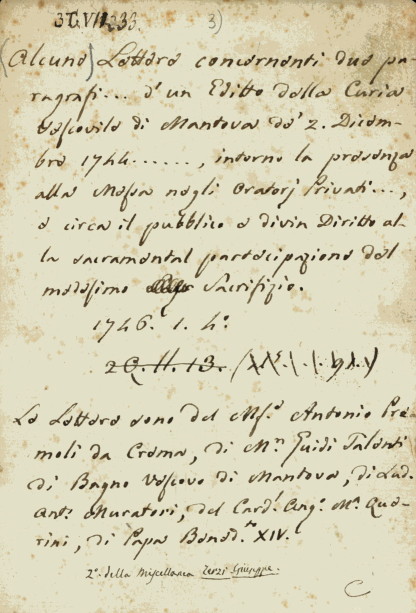 3T.VII.33. 3)
(Alcune) Lettere concernenti due pa-
ragrafi... d'un Editto della Curia
Vescovile di Mantova de' 2. Dicem-
bre 1744......, intorno la presenza
alla Messa negli Oratorj Privati...,
e circa il pubblico e divin Diritto al-
la sacramental partecipazione del
medesimo Sacrifizio.
1746. 1. 4º.
2Q.II.13.
Le Lettere sono del Mse. Antonio Pre
moli da Crema, di Mr. Guidi Talenti
di Bagno Vescovo di Mantova, di Lud.
Ant. Muratori, del Card. Ang. Ma. Que-
rini, di Papa Bened.to XIV.
2º. della Miscellanea Terzi Giuseppe.
C